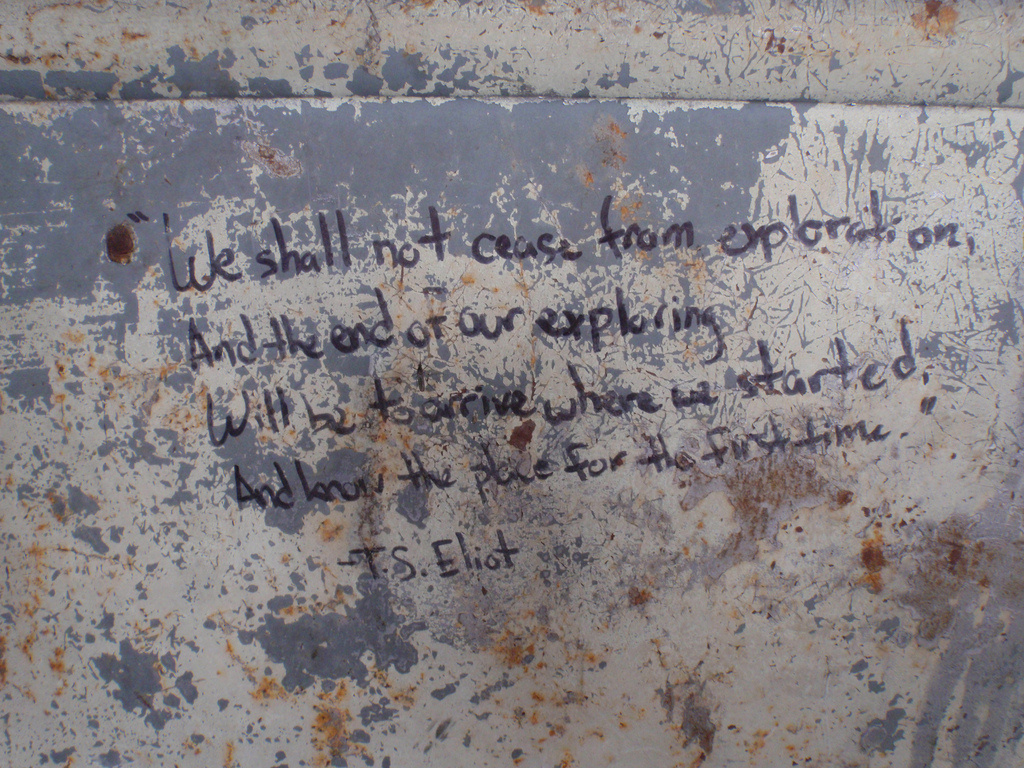 "We shall not cease from exploration,
And the end of our exploring
Will be to arrive where we started,
And know the place for the first time."
-T.S. Eliot